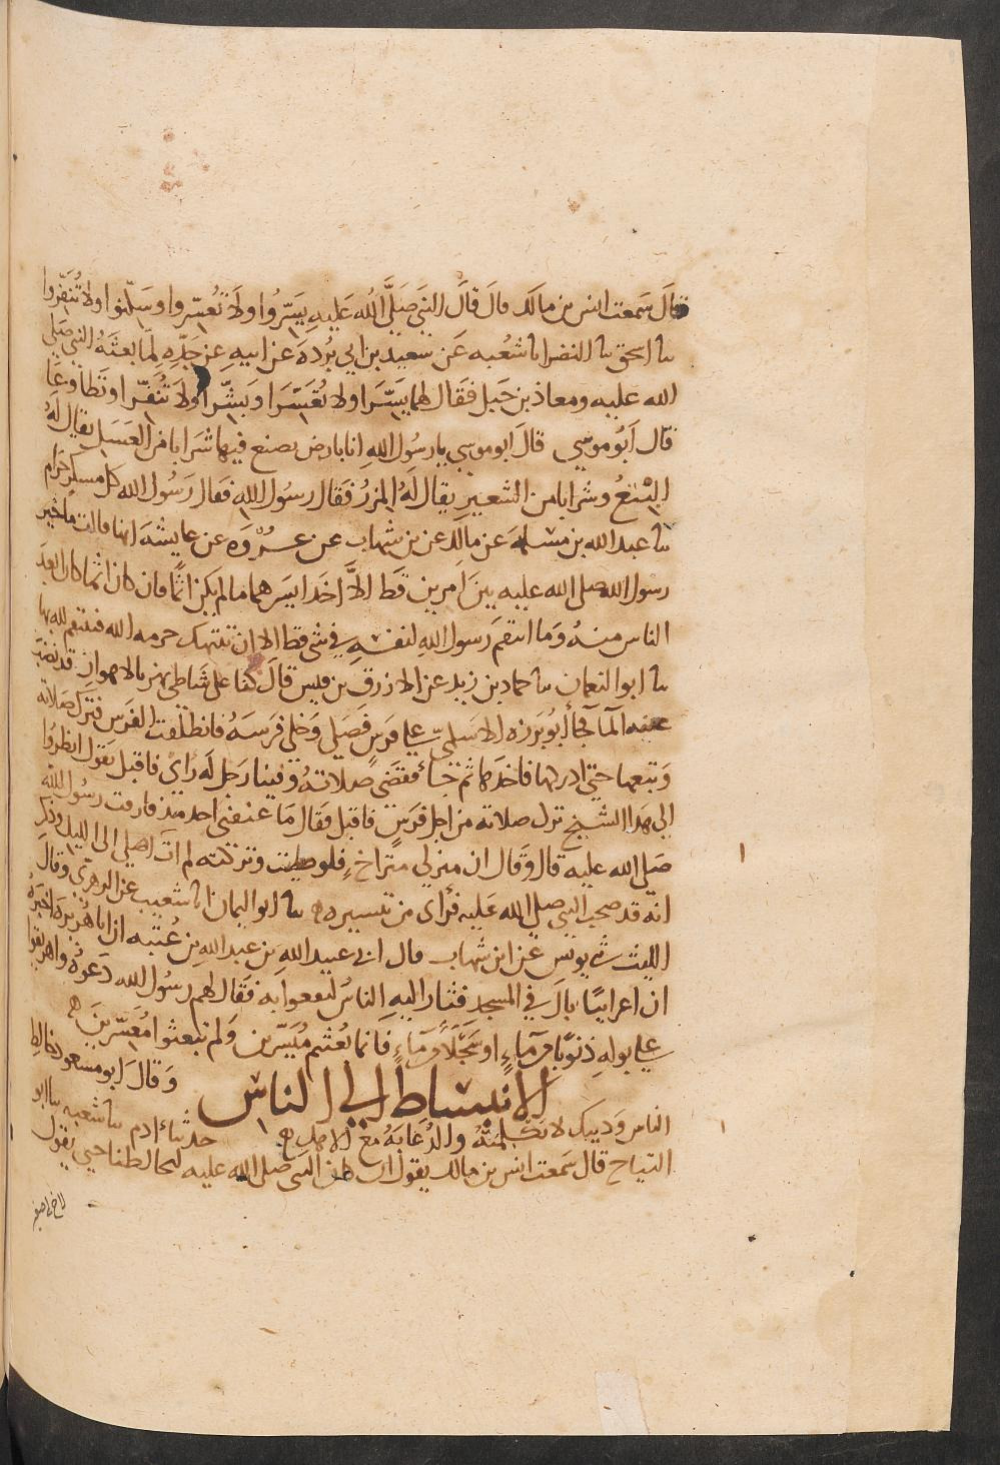 قال سمعت انس بن مالك قال قال النبي صلى الله عليه يسروا ولا تعسروا وسكنوا ولا تنفروا
نا اسحق نا النضر انا شعبه عن سعيد بن ابي برده عن ابيه عن جده لما بعثه النبي صلى
الله عليه ومعاذ بن جبل فقال لهما يسرا ولا تعسرا وبشرا ولا تنفرا وتطاوعا
قال ابو موسي قال ابو موسي يا رسول الله انا بارض يصنع فيها شرابا من العسل يقال له
البتع وشرابا من الشعير يقال له المزر فقال رسول الله فقال رسول الله كل مسكر حرام
نا عبد الله بن مسلمه عن مالك عن بن شهاب عن عروه عن عايشه انها قالت ما خير
رسول الله صلى الله عليه بين امرين قط الا اخذ ايسرهما ما لم يكن اثما فان كان اثما كان ابعد
الناس منه وما انتقم رسول الله لنفسه في شي قط الا ان تنتهك حرمه الله فينتقم لله بها
نا ابو النعمان نا حماد بن زيد عن الازرق بن قيس قال كنا على شاطي نهر بالاهواز قد نضب
عنه الما فجا ابو برزه الاسلمي علي فرس فصلي وخلى فرسه فانطلقت الفرس فترك صلاته
وتبعها حتي ادركها فاخذها ثم جا فقضى صلاته وفينا رجل له راى فاقبل يقول انظروا
الى هذا الشيخ ترك صلاته من اجل فرس فاقبل فقال ما عنفني احد منذ فارقت رسول الله
صلى الله عليه قال وقال ان منزلي متراخ فلو صليت وتركته لم ات اهلي الى الليل وذكر
انه قد صحب النبي صلى الله عليه فراى من تيسيره نا ابو اليمان انا شعيب عن الزهري وقال
الليث ني يونس عن ابن شهاب قال اني عبيد الله بن عبد الله بن عتبه ان ابا هريره اخبره
ان اعرابيا بال في المسجد فثار اليه الناس ليقعوا به فقال لهم رسول الله دعوه واهريقوا
علي بوله ذنوبا من ماء او سجلا من ماء فانما بعثتم ميسرين ولم تبعثوا معسرين
الانبساط الي الناس وقال ابو مسعود خالط
الناس ودينك لا تكلمنه والدعابه مع الاهل حدثنا ادم نا شعبه نا ابو
التياح قال سمعت انس بن مالك يقول ان كان النبي صلى الله عليه ليخالطنا حتي يقول
لاخ لي صغير